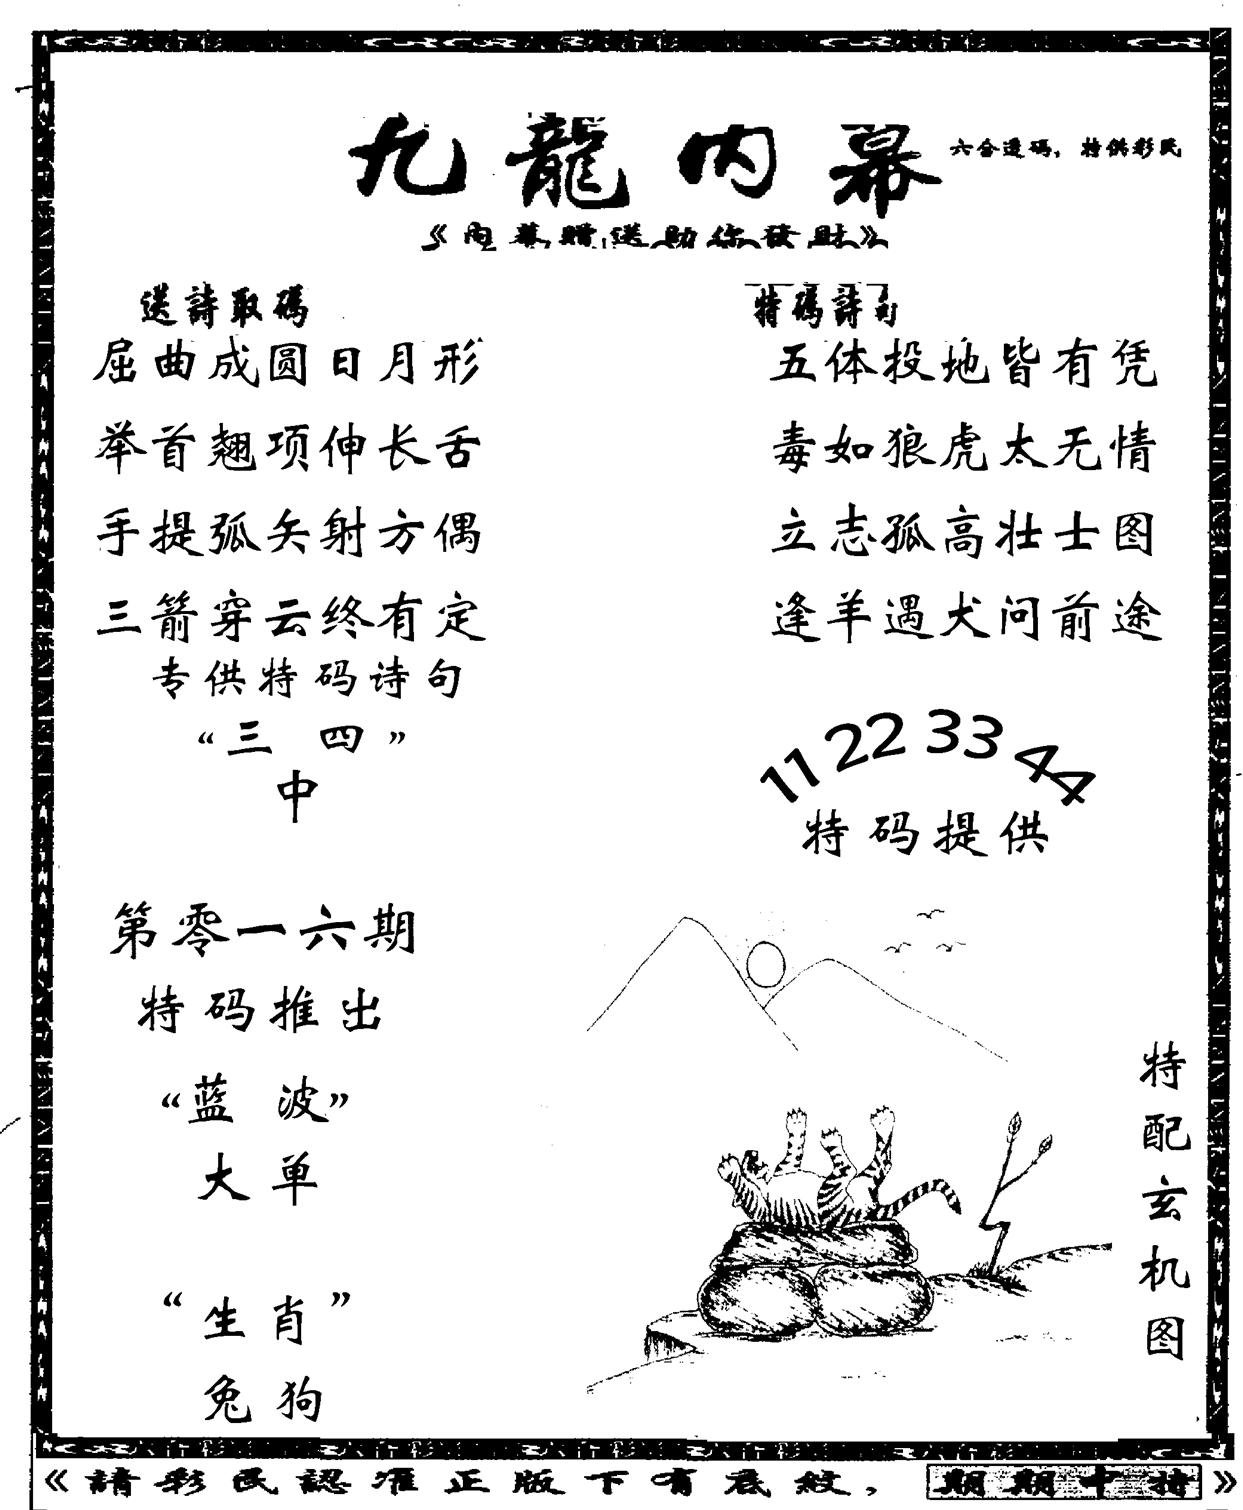 九龍内幕
六合透码，特供彩民
《内幕赠送助你發财》
送詩取碼
屈曲成圆日月形
举首翘项伸长舌
手提弧矢射方偶
三箭穿云终有定
专供特码诗句
“三 四”
中
第零一六期
特码推出
“蓝 波”
大单
“生肖”
兔狗
特碼詩句
五体投地皆有凭
毒如狼虎太无情
立志孤高壮士图
逢羊遇犬问前途
11 22 33 44
特码提供
特配玄机图
《請彩民認准正版下有底紋，期期中特》